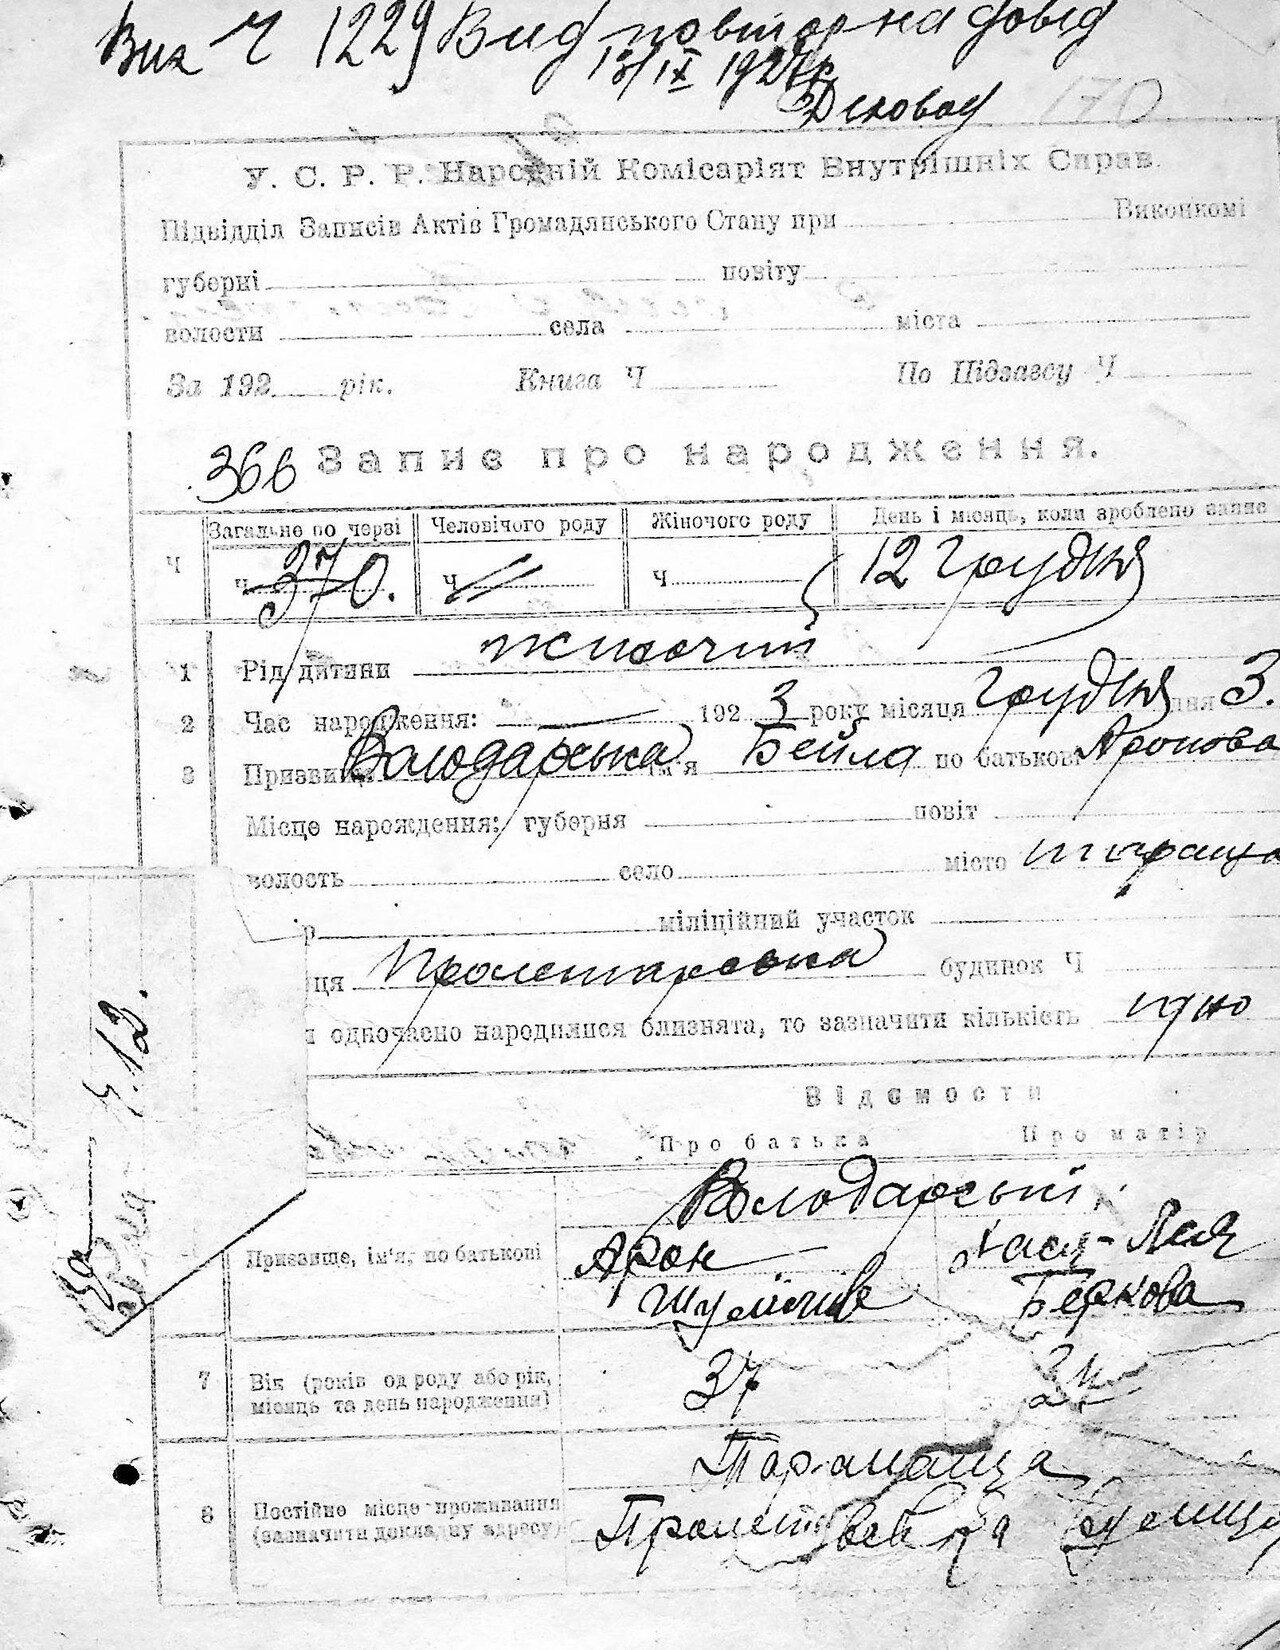 Вид повторна довід
Ч 1229
13/IX
170
У. С. Р. Р. Народній Комісаріят Внутрішніх Справ.
Підвідділ Записів Актів Громадянського Стану при Виконкомі
губерні повіту
волости села міста
За 192 рік. Книга Ч По Підзагсу Ч
366 Запис про народження.
Загальне по черзі Человічого роду Жіночого роду День і місяць, коли зроблено запис
Ч Ч 370. Ч Ч 12 Грудня
1 Рід дитини жіночий
2 Час народження: 1923 року місяця Грудня дня 3.
3 Призвище Володарська ім'я Бейла по батькові Аронова
Місце народження: губерня повіт
волость село місто Тараща
р міліційний участок
ця Пролетарська будинок Ч
одночасно народилися близнята, то зазначити кількість одно
Ч. 12.
Відомости
Про батька Про матір
Володарський
Призвище, ім'я, по батькові Арон Хася-Лея
Шулімів Беркова
7 Вік (років од роду або рік, місяць та день народження) 37
Таращанща
8 Постійне місце проживання
(зазначити докладну адресу)